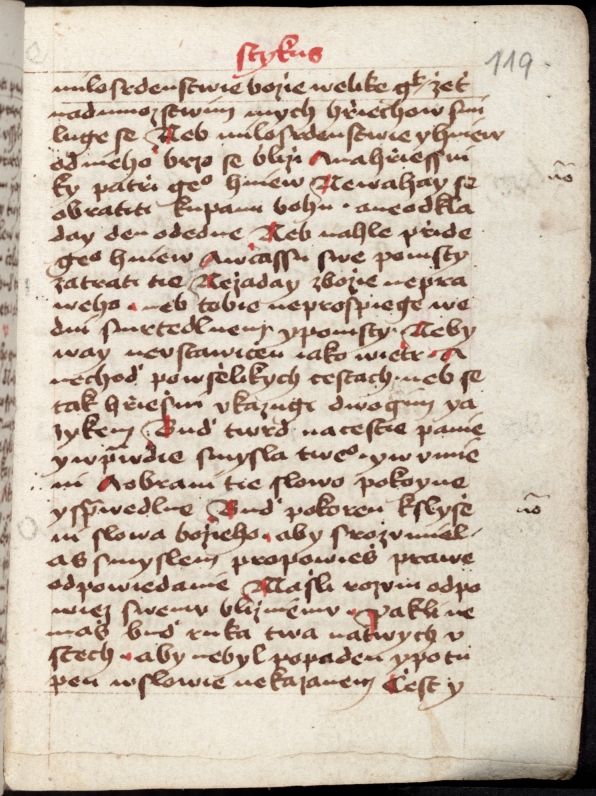 stykus
119
milosrdenstwie bozie welike gt żet
nad mnozstwim mych hřiechow smi
luge se Neb milosrdenstwie y hniew
od nieho brzo se blizi A na hřiessni
ky patři geo hniew Newahay se
obratiti ku panu bohu · a neodkla
day den ode dne Neb nahle přide
geo hniew A w čassu swe pomsty
zatrati tie Nežaday zbozie nepra
weho · neb tobie neprospiege we
dni smrtedlnem y pomsty · Neby
way neustawičen iako wietr · A
nechoď po wselikych cestach neb se
tak hřiesni vkazugi dwogim ya
zykem Buď twrd na cestie panie
y w prwdie smysla tweo · y w vmie
ni A obrani tie slowo pokoyne
y sprwedlne Buď pokoren k slyše
ni slowa bozieho · aby srozumiel ·
a s smyslem propowieš prawe
odpowiedanie Mašli rozum odpo
wiez swemu blizniemu · Pakli ne
maš buď ruka twa na twych v
stech · aby nebyl popaden y potu
pen w slowie nekazanem Čest y
no
no